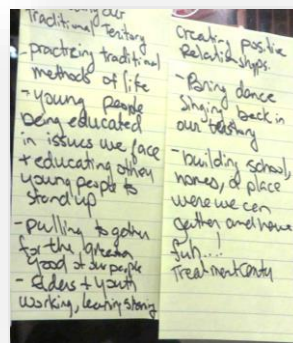 our
Traditional Teritory
- practicing traditional
methods of life
- young people
being educated
in issues we face
+ educating other
young people to
stand up
- pulling together
for the
good of our people
- Elders + youth
working,
Creating
Relationships.
- Bring dance
Singing back in
our
- building school,
homes, a place
were we can
gather and have
fun...!
Treatment